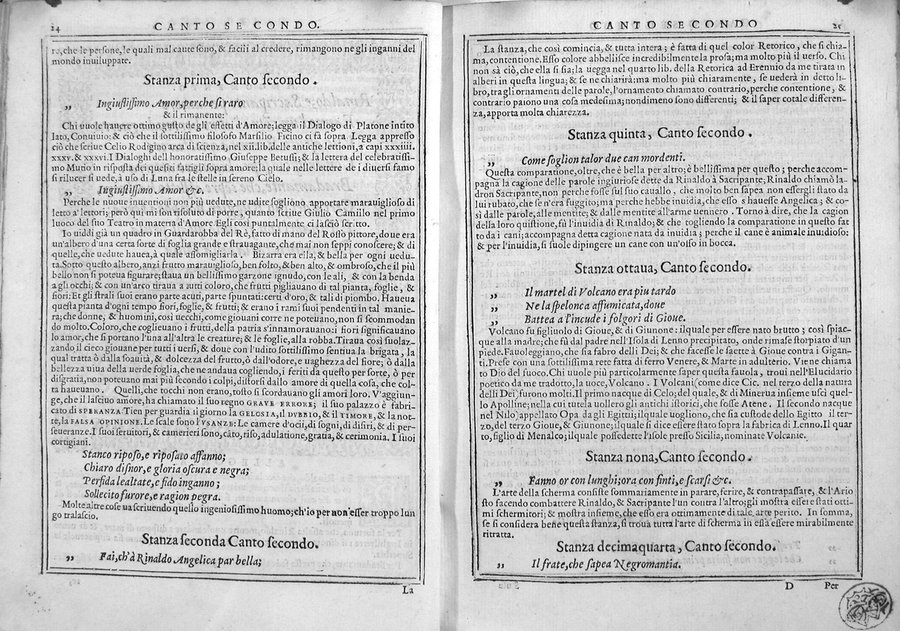 24 CANTO SECONDO.
re, che le persone, le quali mal caute sono, & facili al credere, rimangono ne gli inganni del
mondo inuiluppate.
Stanza prima, Canto secondo.
„ Ingiustissimo Amor, perche si raro
& il rimanente:
Chi uuole hauere ottimo gusto de gli effetti d'Amore; legga il Dialogo di Platone intito
lato, Conuiuio: & ciò che il sottilissimo filosofo Marsilio Ficino ci fà sopra. Legga appresso
ciò che scriue Celio Rodigino arca di scienza, nel xii. lib. delle antiche lettioni, a capi xxxiiii.
xxxv. & xxxvi. I Dialoghi dell honoratissimo Giuseppe Betussi; & la lettera del celebratissi-
mo Mutio in risposta dei questiti fattigli sopra amore; la quale nelle lettere de i diuersi famo
si rilucer si uede, à uso di Luna fra le stelle in sereno Cielo.
„ Ingiustissimo Amor &c.
Perche le nuoue inuentioni non più uedute, ne udite sogliono apportare marauiglioso di
letto a' lettori; però qui mi son risoluto di porre, quanto scriue Giulio Camillo nel primo
luogo del suo Teatro in materia d'Amore Egli così puntalmente ci lasciò scritto.
Io uiddi già un quadro in Guardarobba del Rè, fatto di mano del Rosso pittore, doue era
un'albero d'una certa sorte di foglia grande e strauagante, che mai non seppi conoscere; & di
quelle, che uedute haueа, à quale assomigliarla. Bizarra era ella, & bella per ogni uedu-
ta. Sotto questo albero, anzi frutto marauiglioso, ben folto, & ben alto, & ombroso, che il più
bello non si poteua figurare; staua un bellissimo garzone ignudo, con le ali, & con la benda
a gli occhi; & con un'arco tiraua a tutti coloro, che frutti pigliauano di tal pianta, foglie, &
fiori: Et gli strali suoi erano parte acuti, parte spuntati: certi d'oro, & tali di piombo. Haueua
questa pianta d'ogni tempo fiori, foglie, & frutti; & erano i rami suoi pendenti in tal manie-
ra; che donne, & huomini, così uecchi, come giouani corre ne poteuano, non si scommodan
do molto. Coloro, che coglieuano i frutti, della patria s'innamorauano: i fiori significauano
lo amor, che si portano l'una all'altra le creature; & le foglie, alla robba. Tiraua così suolaz-
zando il cieco giouane per tutti i uersi, & doue con l'udito sottilissimo sentiua la brigata, la
qual tratta ò dalla soauità, & dolcezza del frutto, ò dall'odore, e uaghezza del fiore; ò dalla
bellezza uiua della uerde foglia, che ne andaua cogliendo, i feriti da questo per sorte, ò per
disgratia, non poteuano mai più secondo i colpi, distorsi dallo amore di quella cosa, che col-
ta haueuano. Quelli, che tocchi non erano, tosto si scordauano gli amori loro. V'aggiun-
ge, che il lasciuo amore, ha chiamato il suo regno GRAVE ERRORE; il suo palazzo è fabri-
cato di SPERANZA. Tien per guardia il giorno la GELOSIA, il DVBBIO, & il TIMORE, & la not-
te, la FALSA OPINIONE. Le scale sono l'VSANZE: Le camere d'ocij, di sogni, di disiri, & di per-
seueranze. I suoi seruitori, & camerieri sono, cãto, riso, adulatione, gratia, & cerimonia. I suoi
cortigiani.
Stanco riposo, e riposato affanno;
Chiaro disnor, e gloria oscura e negra;
Perfida lealtate, e fido inganno;
Sollecito furore, e ragion pegra.
Molte altre cose ua scriuendo quello ingeniosissimo huomo; ch'io per non esser troppo lun
go tralascio.
Stanza seconda Canto secondo.
„ Fai, ch'à Rinaldo Angelica par bella;
La
CANTO SECONDO 25
La stanza, che così comincia, & tutta intera; è fatta di quel color Retorico, che si chia-
ma, contentione. Esso colore abbellisce incredibilmente la prosa; ma molto più il uerso. Chi
non sà ciò, che ella si sia; la uegga nel quarto lib. della Retorica ad Erennio da me tirata in
alberi in questa lingua; & se ne chiarirà: ma molto più chiaramente, se uederà in detto li-
bro, tra gli ornamenti delle parole, l'ornamento chiamato contrario, perche contentione, &
contrario paiono una cosa medesima; nondimeno sono differenti; & il saper cotale differen-
za, apporta molta chiarezza.
Stanza quinta, Canto secondo.
„ Come soglion talor due can mordenti.
Questa comparatione, oltre, che è bella per altro; è bellissima per questo; perche accom-
pagna la cagione delle parole ingiuriose dette da Rinaldo à Sacripante, Rinaldo chiamò la-
dron Sacripante, non perche fosse sul suo cauallo, che molto ben sapea non essergli stato da
lui rubato, che se n'era fuggito; ma perche hebbe inuidia, che esso s'hauesse Angelica; & co-
sì dalle parole, alle mentite; & dalle mentite all'arme uennero. Torno à dire, che la cagion
della loro quistione, fù l'inuidia di Rinaldo; & che togliendo la comparatione in questo fat
to da i cani; accompagna detta cagione nata da inuidia; perche il cane è animale inuidioso:
& per l'inuidia, si suole dipingere un cane con un'osso in bocca.
Stanza ottaua, Canto secondo.
„ Il martel di Volcano era piu tardo
„ Ne la spelonca affumicata, doue
„ Battea a l'incude i folgori di Gioue.
Volcano fu figliuolo di Gioue, & di Giunone: ilquale per essere nato brutto; così spiac-
que alla madre; che fù dal padre nell'Isola di Lenno precipitato, onde rimase storpiato d'un
piede. Fauoleggiano, che sia fabro delli Dei; & che facesse le saette à Gioue contra i Gigan-
ti. Prese con una sottilissima rete fatta di ferro Venere, & Marte in adulterio. Viene chiama
to Dio del fuoco. Chi uuole più particolarmente saper questa fauola, troui nell'Elucidario
poetico da me tradotto, la uoce, Volcano. I Volcani (come dice Cic. nel terzo della natura
delli Dei) furono molti. Il primo nacque di Celo; del quale, & di Minerua insieme uscì quel
lo Apolline; nella cui tutela uollero gli antichi istorici, che fosse Atene. Il secondo nacque
nel Nilo; appellato Opa da gli Egittij; ilquale uogliono, che sia custode dello Egitto il ter-
zo, del terzo Gioue, & Giunone; ilquale si dice essere stato sopra la fabrica di Lenno. Il quar
to, figlio di Menalco; ilquale possedette l'isole presso Sicilia, nominate Volcante.
Stanza nona, Canto secondo.
„ Fanno or con lunghi; ora con finti, e scarsi &c.
L'arte della scherma consiste sommariamente in parare, ferire, & contrapassare, & l'Ario
sto facendo combattere Rinaldo, & Sacripante l'un contra l'altro; gli mostra essere stati otti-
mi schermitori; & mostra insieme, che esso era ottimamente di tale arte perito. In somma,
se si considera bene questa stanza, si troua tutta l'arte di scherma in essa essere mirabilmente
ritratta.
Stanza decimaquarta, Canto secondo.
„ Il frate, che sapea Negromantia.
D Per